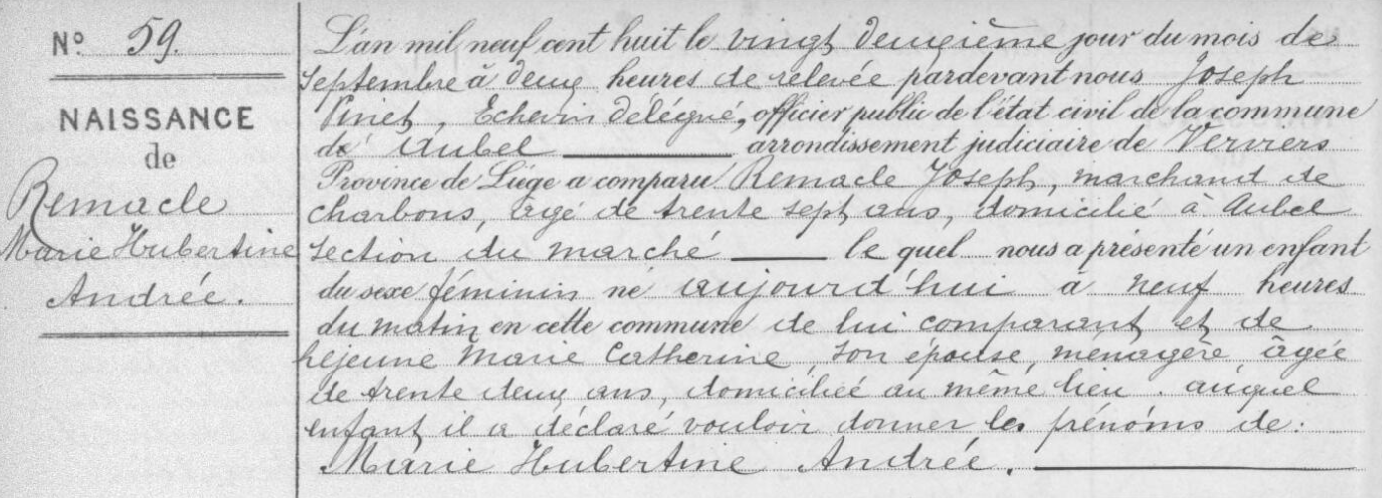 N° 59.
NAISSANCE
de
Remacle
Marie Hubertine
Andrée.
L'an mil neuf cent huit le vingt deuxième jour du mois de
Septembre à deux heures de relevée pardevant nous Joseph
Pinet, Echevin délégué, officier public de l'état civil de la commune
de Aubel arrondissement judiciaire de Verviers
Province de Liége a comparu Remacle Joseph, marchand de
charbons, âgé de trente sept ans, domicilié à Aubel
section du marché le quel nous a présenté un enfant
du sexe féminin né aujourd'hui à neuf heures
du matin en cette commune de lui comparant et de
Lejeune Marie Catherine, son épouse, ménagère, âgée
de trente deux ans, domiciliée au même lieu. auquel
enfant il a déclaré vouloir donner les prénoms de:
Marie Hubertine Andrée.